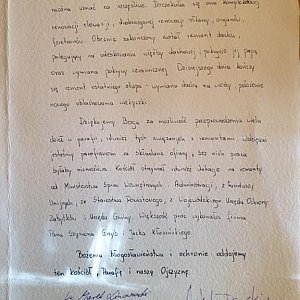 można uznać na szczęśliwe. Doczekała się ona kompleksowej
renowacji elewacji, drobiazgowej renowacji ołtarzy, organów,
feretronów. Obecnie zakończony został remont dachu,
polegający na odeskowaniu więźby dachowej, pokryciu jej papą
oraz wymiana pokrycia ceramicznego. Dzisiejszego dnia kończy
się remont ostatniego etapu - wymiana dachu na wieży położenie
nowego odeskowania wieżyczki.
Dziękujemy Bogu za możliwość przeprowadzenia wielu
dzieł w parafii, również tych związanych z remontami
jesteśmy parafianom za składane ofiary, bez nich praca
byłaby niemożliwa. Kościół otrzymał również dotacje na remonty
od Ministerstwa Spraw Wewnętrznych i Administracji, z funduszy
Unijnych, ze Starostwa Powiatowego, z Wojewódzkiego Urzędu Ochrony
Zabytków i Urzędu Gminy. Większość prac wykonała firma
Pana Szymona i Jacka Kłosińskiego.
Bożemu błogosławieństwu i ochronie oddajemy
ten kościół, Parafię i naszą Ojczyznę.
ks. Marek